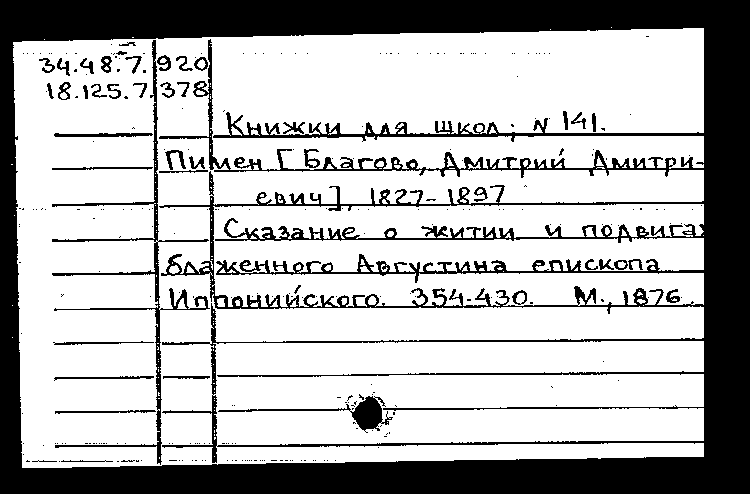 34.48.7.920
18.125.7.378
Книжки для школ; N 141.
Пимен [Благово, Дмитрий Дмитри-
евич], 1827-1897
Сказание о житии и подвигах
блаженного Августина епископа
Иппонийского. 354-430. М., 1876.